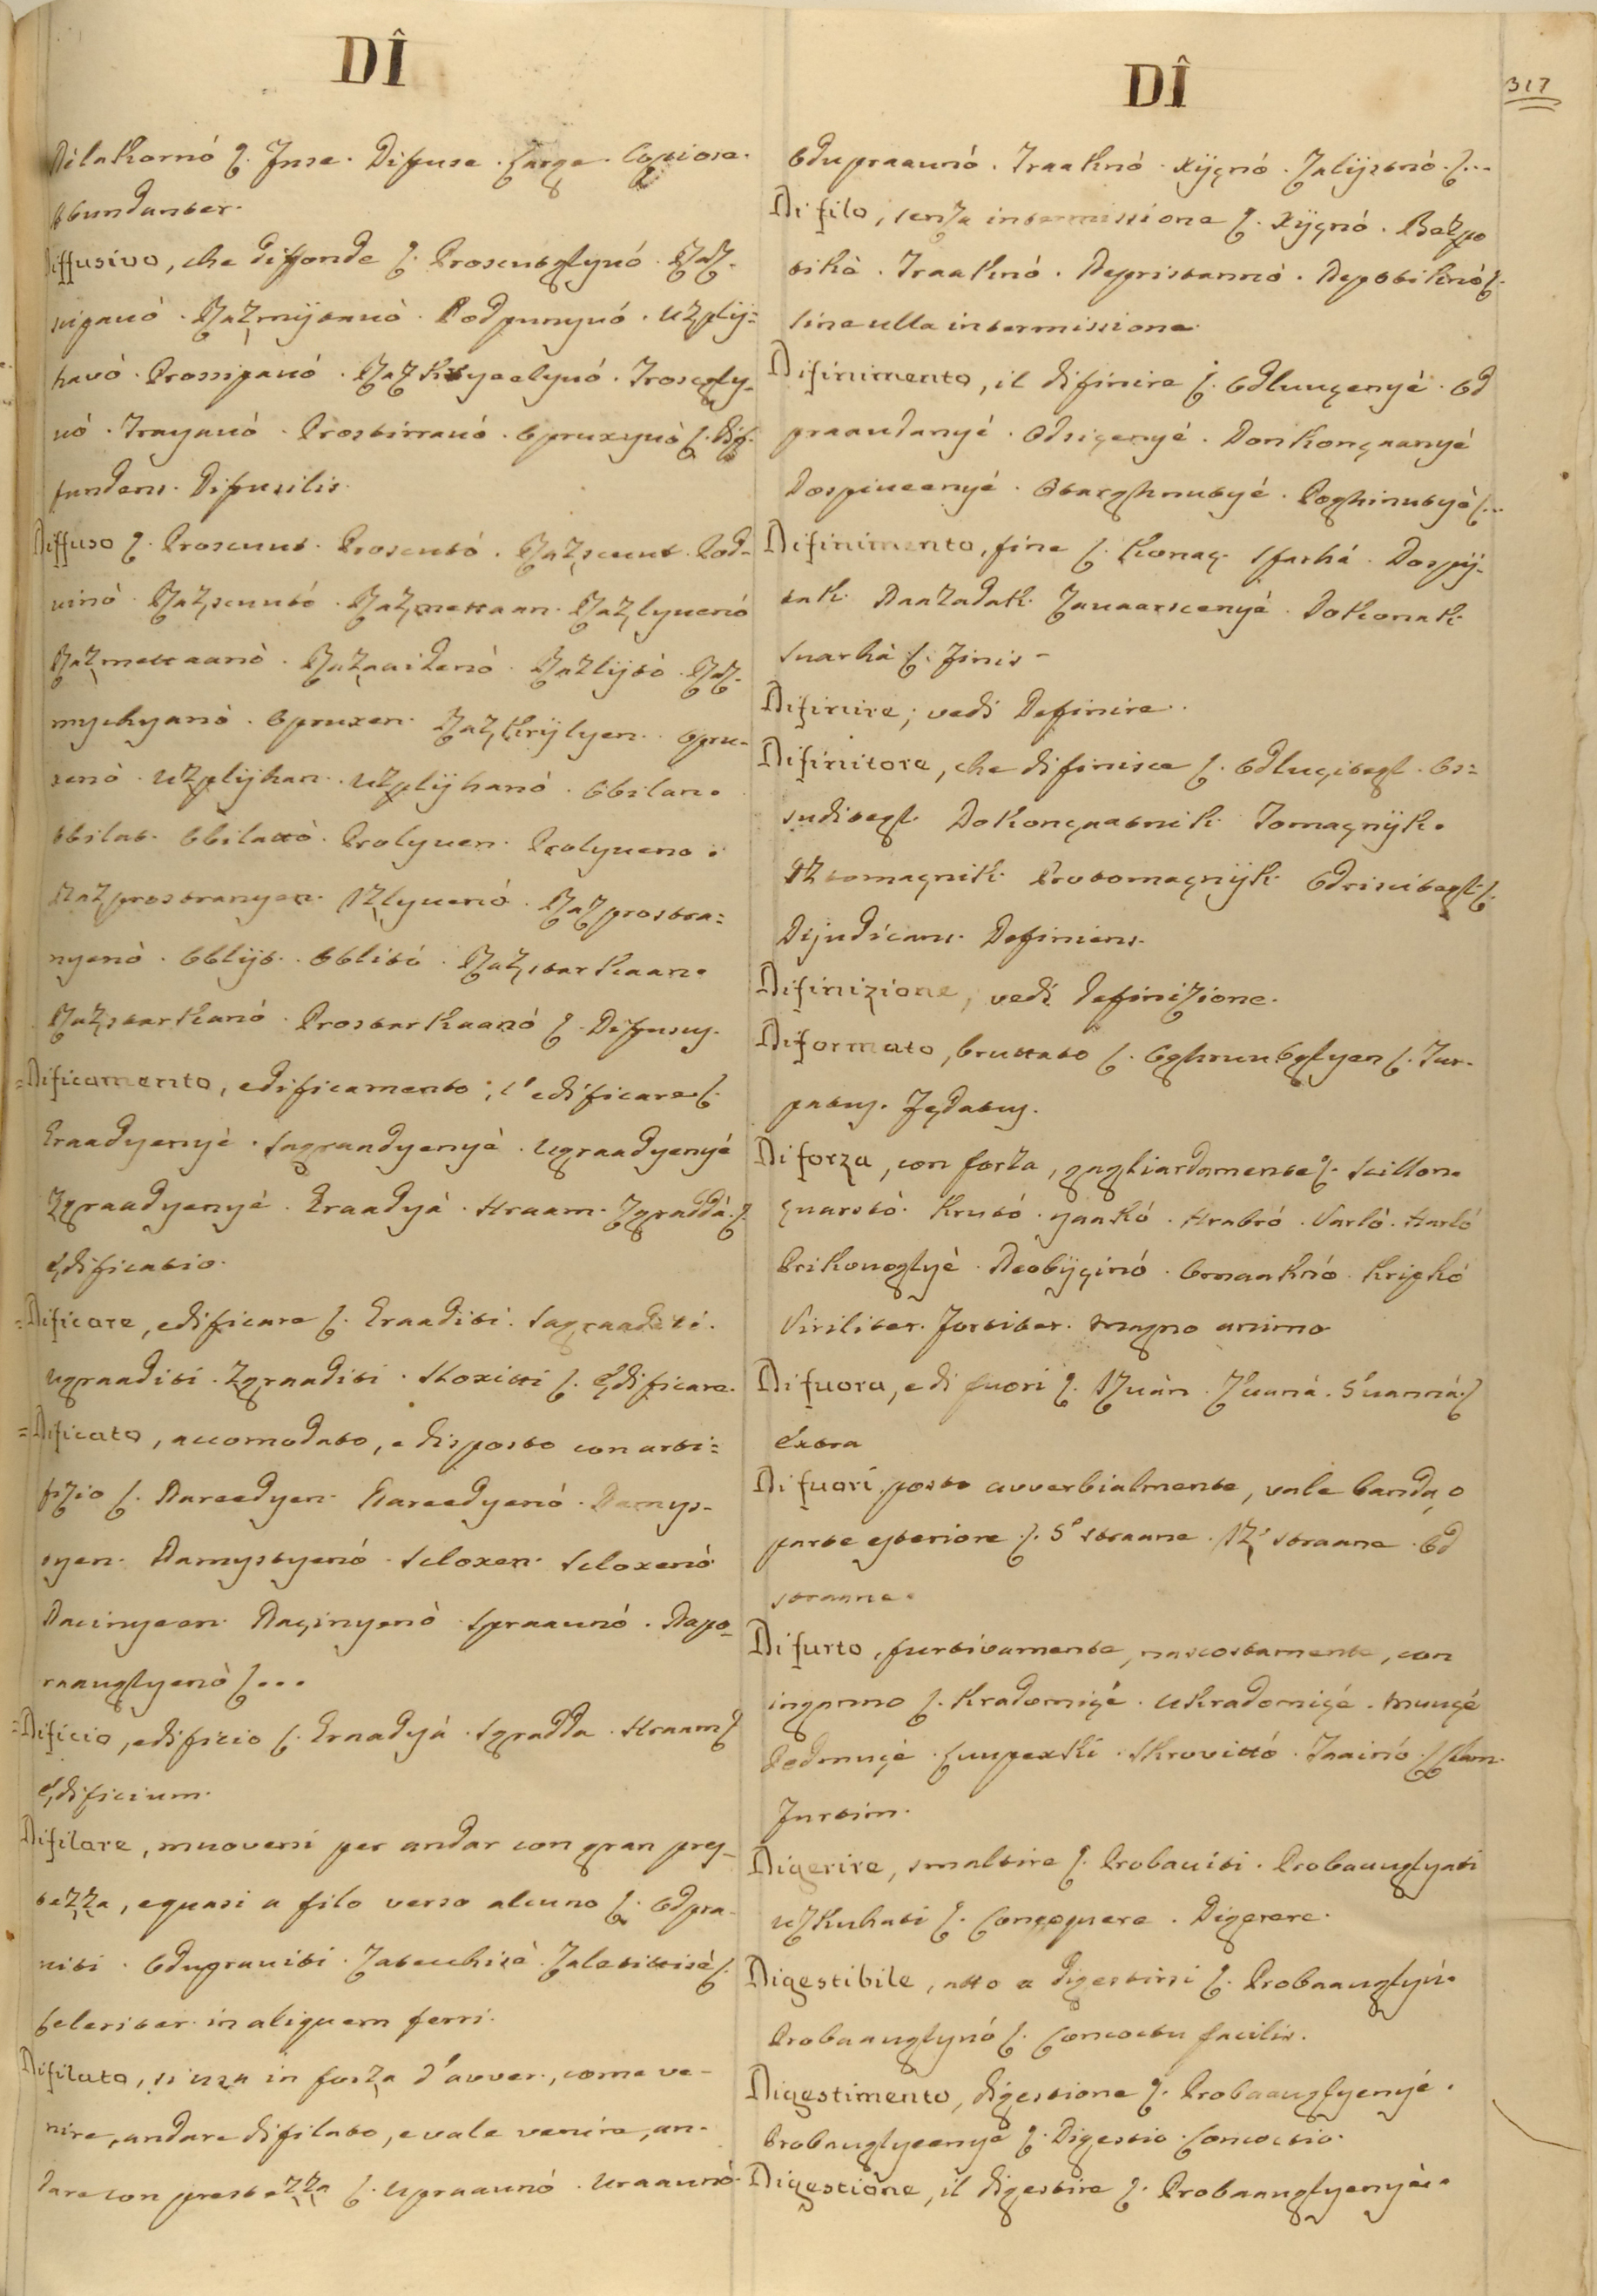 DÎ
Dilakornó ʃ. Fuse. Difuse. Large. Copiose.
Abundanter.
Diffusivo, che diffonde ʃ. Proscutglyuó. Raz-
sipauó. Razmÿtauò. Podpunyuó. Uzplÿ=
havó. Prossipauó.
uó. Trayauó. Prostirrauó. Opruxyuò ʃ. Dif-
fundens. Difusilis.
Diffuso ʃ. Proscuut. Proscutó. Razscuut. Pod-
uinó. Razscuutó. Razmettaan. Razlyuenó
Razmettaanò. Razaaidenó. Razlÿtó. Raz-
mychyanó. Opruxen. Razkrÿlyen. Opru-
xenò. Uzplÿhan. Uzplÿhanó. Obilan.
Obilat. Obilattò. Prolyuen. Prolyueno.
Razprostranyen. Izlyuenó. Razprostra=
nyenò. Obblÿt. Razstarkaan.
Razstarkanó. Prostarkaanó ʃ. Difusuy.
=Dificamento, edificamento, l'edificare ʃ.
Graadyenyè. Sagraadyenyè. Ugraadyenyé
Zgraadyenyé. Graadyá. Hraam. Zgraddà ʃ.
Edificatio.
=Dificare, edificare ʃ. Graaditi. Sagraaditi.
Ugraaditi. Zgraaditi. Sloxitti ʃ. Edificare.
=Dificato, accomodato, e disposto con arti=
fizio ʃ. Nareedyen. Nareedyenó. Namys-
tyen. Namystyenó. Scloxen. Scloxenó
Nacinyeen. Naçinyenò. Spraaunó. Napo-
raauglyenò ʃ...
=Dificio, edificio ʃ. Graadyá. Sgradda. Hraam ʃ
Edificium.
Difilare, muoversi per andar con gran pres-
tezza, e quasi a filo verso alcuno ʃ. Odpra-
uiti. Oduprauiti. Zatecchisè. Zaletittisè ʃ.
Celeriter in aliquem ferri.
Difilato, si usa in forza d'avver., come ve-
nire, andare difilato, e vale venire, an-
dare con prestezza ʃ. Upraaunó. Uraaunò.
DÎ
317
Odupraaunó. Traaknò. Xÿçnó. Zalÿtnò. ʃ...
Di filo, senza intermissione ʃ. Xÿçnó. Bezpo
tikà. Traaknó. Nepristannò. Nepotiknò ʃ.
sine ulla intermissione.
Difinimento, il difinire ʃ. Odluuçenyè. Od
praaudanyé. Odsiçenyé. Donkonçaanyé
Dospiueenyé. Obarghnutyé. Poghinutyé ʃ...
Difinimento, fine ʃ. Konaç. Sfarhá. Dospÿ-
tak. Naazadak. Zauaarscenyé. Dokonak
Suarhà ʃ. Finis-
Difinire, vedi Definire.
Difinitore, che difinisce ʃ. Odluçitegl. Os=
suditegl. Dokonçaatnik. Tomaçnÿk.
Iztomaçnik. Protomaçnÿk. Odriscitegl ʃ.
Dijudicans. Definiens.
Difinizione, vedi Definizione.
Diformato, bruttato ʃ. Oghruubglyen ʃ. Tur-
patuy. Fędatuy.
Di forza, con forza, gagliardamente ʃ. Scillon.
Çuarstò. Krutó. Yaakó. Hrabró. Varlò. Harló
Prikouoglyè. Neobÿçinó. Omaaknó. Kripkó
Viriliter. Fortiter. Magno animo
Di fuora, e di fuori ʃ. Izuàn. Z'uaná. S'uanná ʃ
Extra
Di fuori posto avverbialmente, vale banda, o
parte esteriore ʃ. S' straane. Iz' straane. Od
straane.
Di furto, furtivamente, nascostamente, con
inganno ʃ. Kradomiçé. Ukradomiçé. Muuçé
Podmuçé. Luupexki. Skrovittó. Taainó. ʃ Clam.
Furtim.
Digerire, smaltire ʃ. Probauiti. Probaauglyati
uzkuhati ʃ. Conçoquere. Digerere.
Digestibile, atto a digestirsi ʃ. Probaauglyú.
Probaauglynó ʃ. Concoctu facilis.
Digestimento, digestione ʃ. Probaauglyenyé.
Probauglyeenye ʃ. Digestio. Concoctio.
Digestione, il digestire ʃ. Probaauglyenyèe.